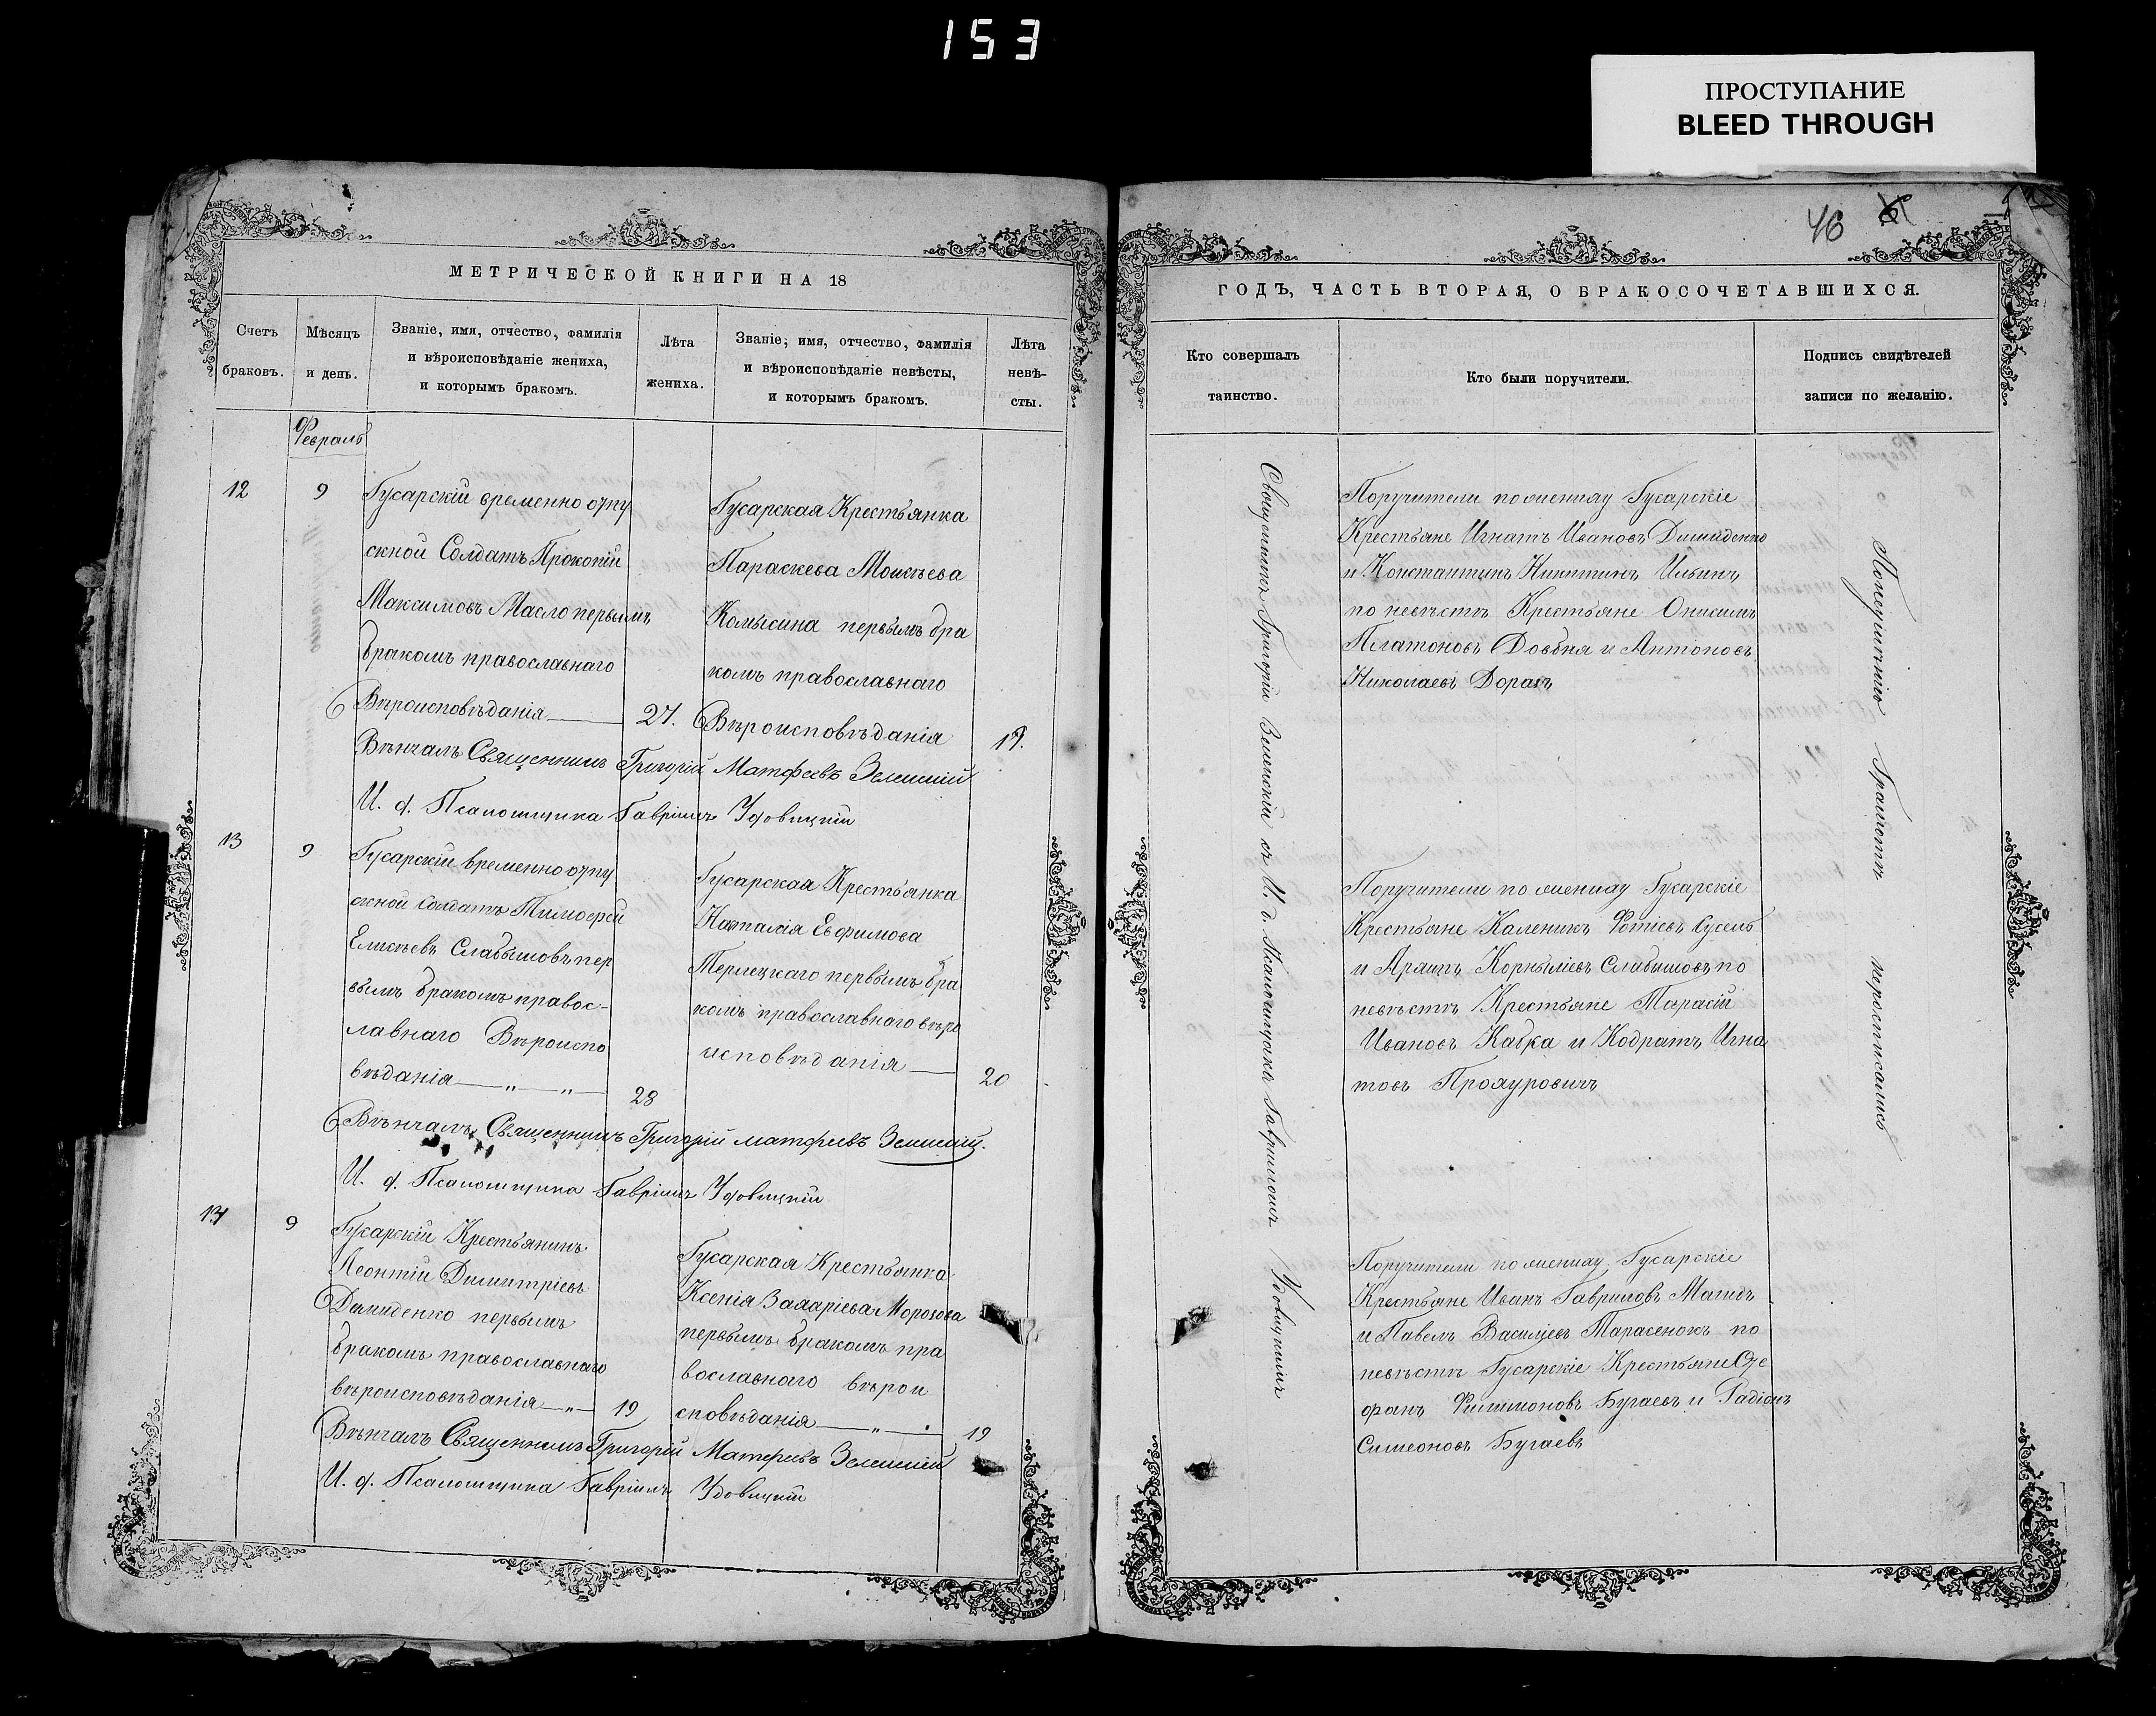 153
ПРОСТУПАНИЕ
BLEED THROUGH
46
МЕТРИЧЕСКОЙ КНИГИ НА 18
Счетъ браковъ.
Мѣсяцъ и день.
Званіе, имя, отчество, фамилія и вѣроисповѣданіе жениха, и которымъ бракомъ.
Лѣта жениха.
Званіе; имя, отчество, фамилія и вѣроисповѣданіе невѣсты, и которымъ бракомъ.
Лѣта невѣ-сты.
Февраль
12
9
Гусарскій временно отпу
скной Солдатъ Прокопій
Максимовъ Масло первымъ
бракомъ православнаго
Вѣроисповѣданія
27.
Гусарская Крестьянка
Параскева Моисѣева
Комысина первымъ бра
комъ православнаго
Вѣроисповѣданія
19.
Вѣнчалъ Священникъ Григорій Матфеевъ Зеленскій
И. д. Псаломщика Гавріилъ Удовицкій
13
9
Гусарскій временно отпу
скной солдатъ Тимофей
Елисѣевъ Слабышовъ пер
вымъ бракомъ правос-
лавнаго Вѣроиспо
вѣданія — „ — „ —
28
Гусарская Крестьянка
Наталія Евфимова
Терлецкаго первымъ бра
комъ православнаго вѣро
исповѣданія —
20
Вѣнчалъ Священникъ Григорій Матфеевъ Зеленскій.
И. д. Псаломщика Гавріилъ Удовицкій
14
9
Гусарскій Крестьянинъ
Леонтій Димитріевъ
Демиденко первымъ
бракомъ православнаго
вѣроисповѣданія — „ —
19
Гусарская Крестьянка
Ксенія Захаріева Морозова
первымъ бракомъ пра
вославнаго вѣрои
сповѣданія — „ —
19
Вѣнчалъ Священникъ Григорій Матфеевъ Зеленскій
И. д. Псаломщика Гавріилъ Удовицкій
ГОДЪ, ЧАСТЬ ВТОРАЯ, О БРАКОСОЧЕТАВШИХСЯ.
Кто совершалъ таинство.
Кто были поручители.
Подпись свидѣтелей записи по желанію.
Священникъ Григорій Зеленскій съ И. д. Псаломщика Гавріиломъ Удовицкимъ
Поручители по жениху Гусарскіе
Крестьяне Игнатъ Ивановъ Демиденко
и Константинъ Никитинъ Ильинъ
по невѣстѣ Крестьяне Онисимъ
Платоновъ Довбня и Антоновъ
Николаевъ Дорахъ
Поручители по жениху Гусарскіе
Крестьяне Каленикъ Фотіевъ Сусель
и Архипъ Корныліевъ Слабышовъ по
невѣстѣ Крестьяне Тарасій
Ивановъ Кабка и Кодратъ Игна
товъ
Поручители по жениху Гусарскіе
Крестьяне Иванъ Гавриловъ
и Павелъ Василіевъ Тарасенокъ по
невѣстѣ Гусарскіе Крестьяни Сте
фанъ Филимоновъ Бугаевъ и Радіонъ
Симеоновъ Бугаевъ
По неумѣнію Грамотѣ нерасписались